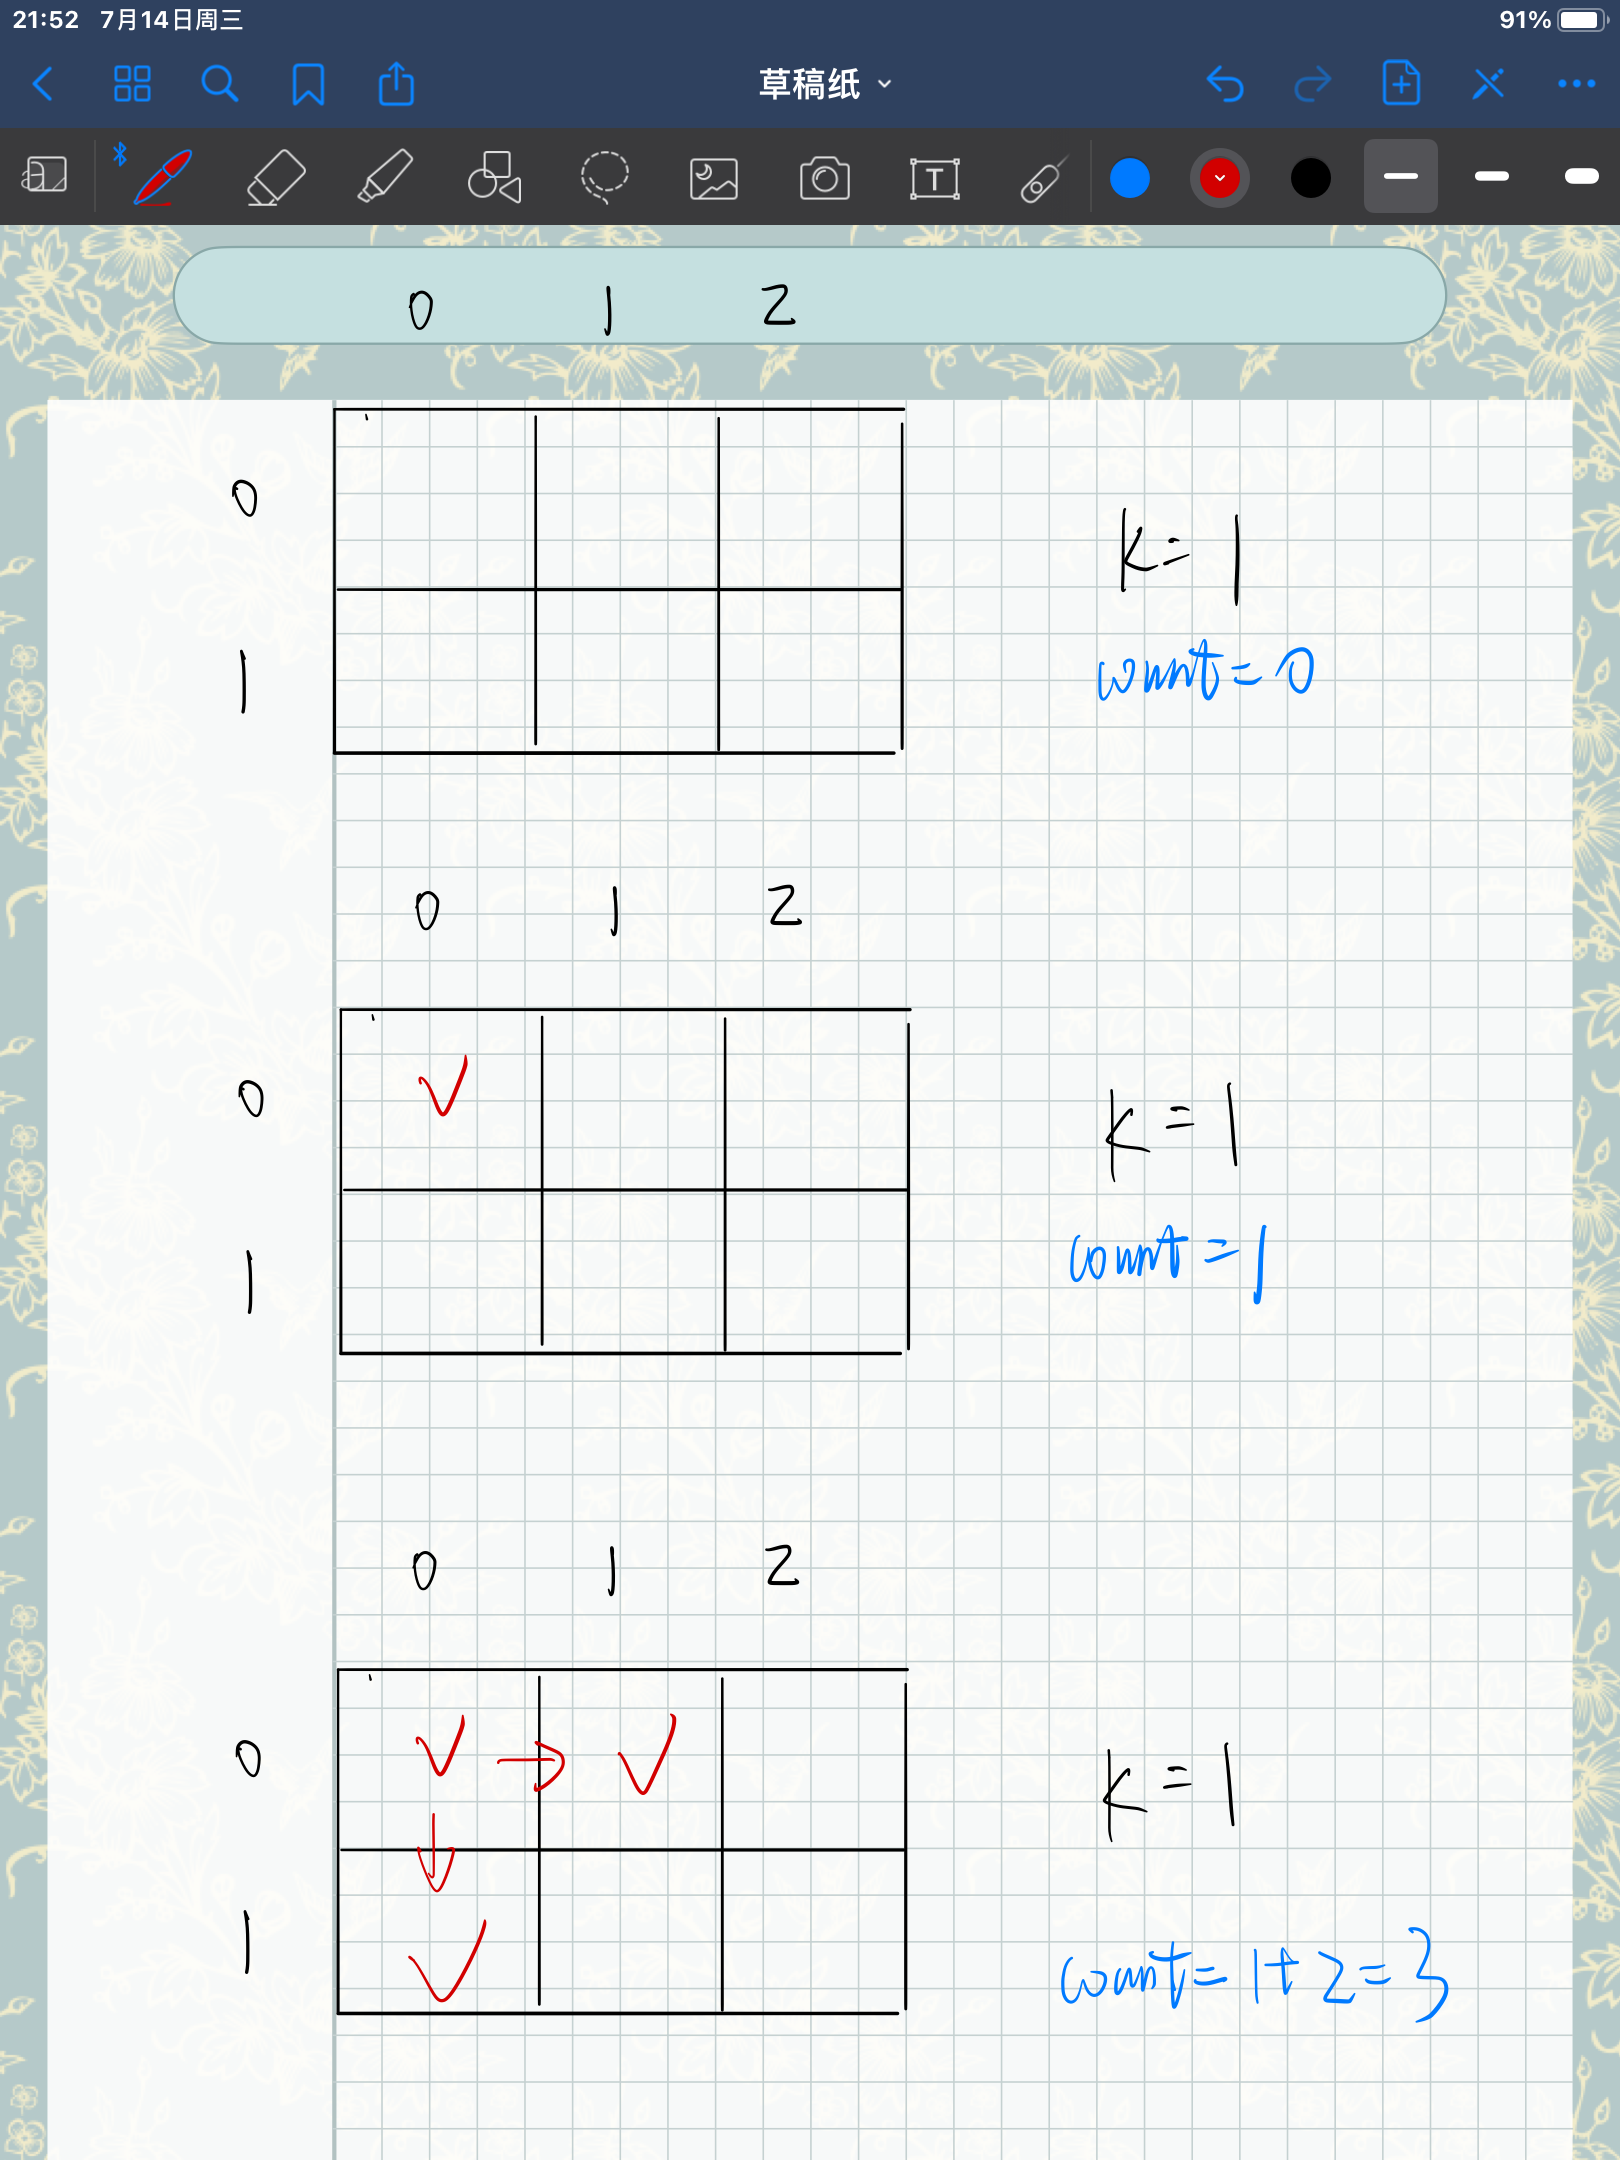 21:52 7月14日周三 91%
草稿纸
T
0 1 2
0
k=1
count=0
1
0 1 2
0
k=1
1
count=1
0 1 2
0
k=1
1
count=1+2=3